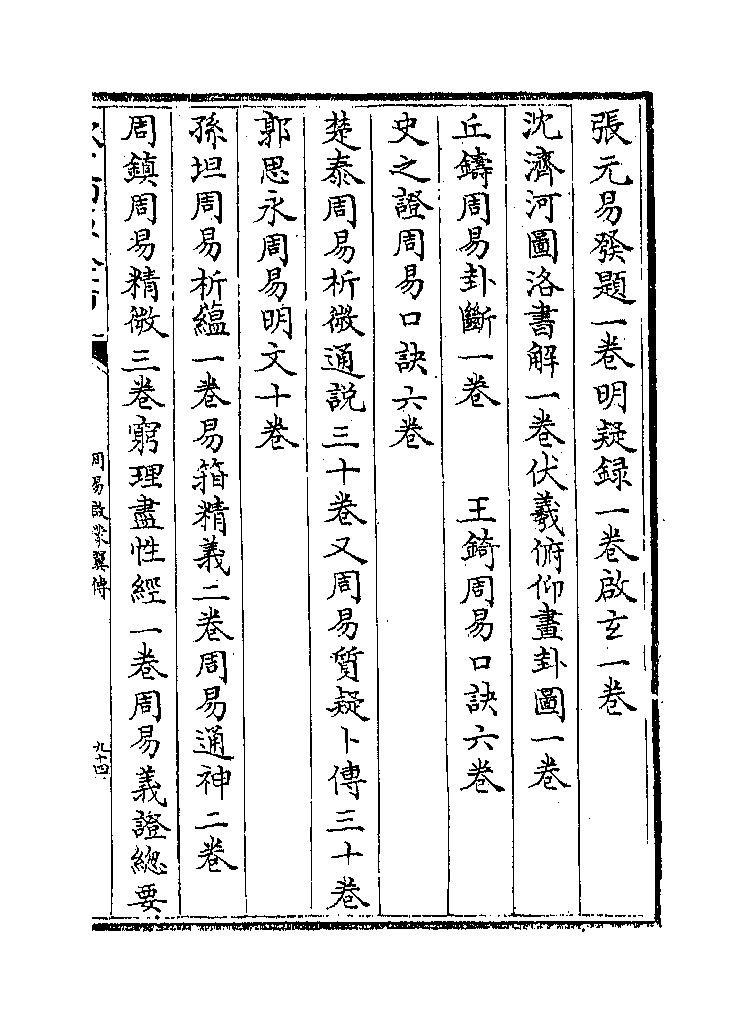 張元易發題一卷明疑録一卷啟𤣥一卷
沈濟河圖洛書解一卷伏羲俯仰畫卦圖一卷
丘鑄周易卦斷一卷　　王錡周易口訣六卷
史之證周易口訣六卷
楚泰周易析微通説三十卷又周易質疑卜傳三十卷
郭思永周易明文十卷
孫坦周易析蘊一卷易箝精義二卷周易通神二卷
周鎮周易精微三卷窮理盡性經一卷周易義證總要
周易啟蒙翼傳
九十四